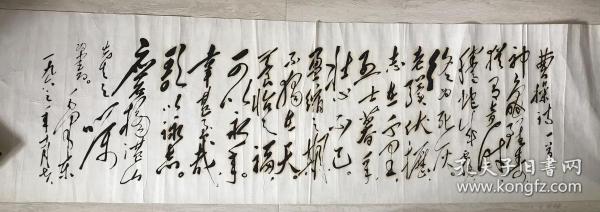 曹操诗一首
神龟虽寿
犹有竟时
腾蛇乘雾
终为死灰
老骥伏枥
志在千里
烈士暮年
壮心不已
盈缩之期
不独在天
养怡之福
可以永年
幸甚至哉
歌以咏志
应
之嘱
毛泽东
一九六
孔夫子旧书网
www.kongfz.com